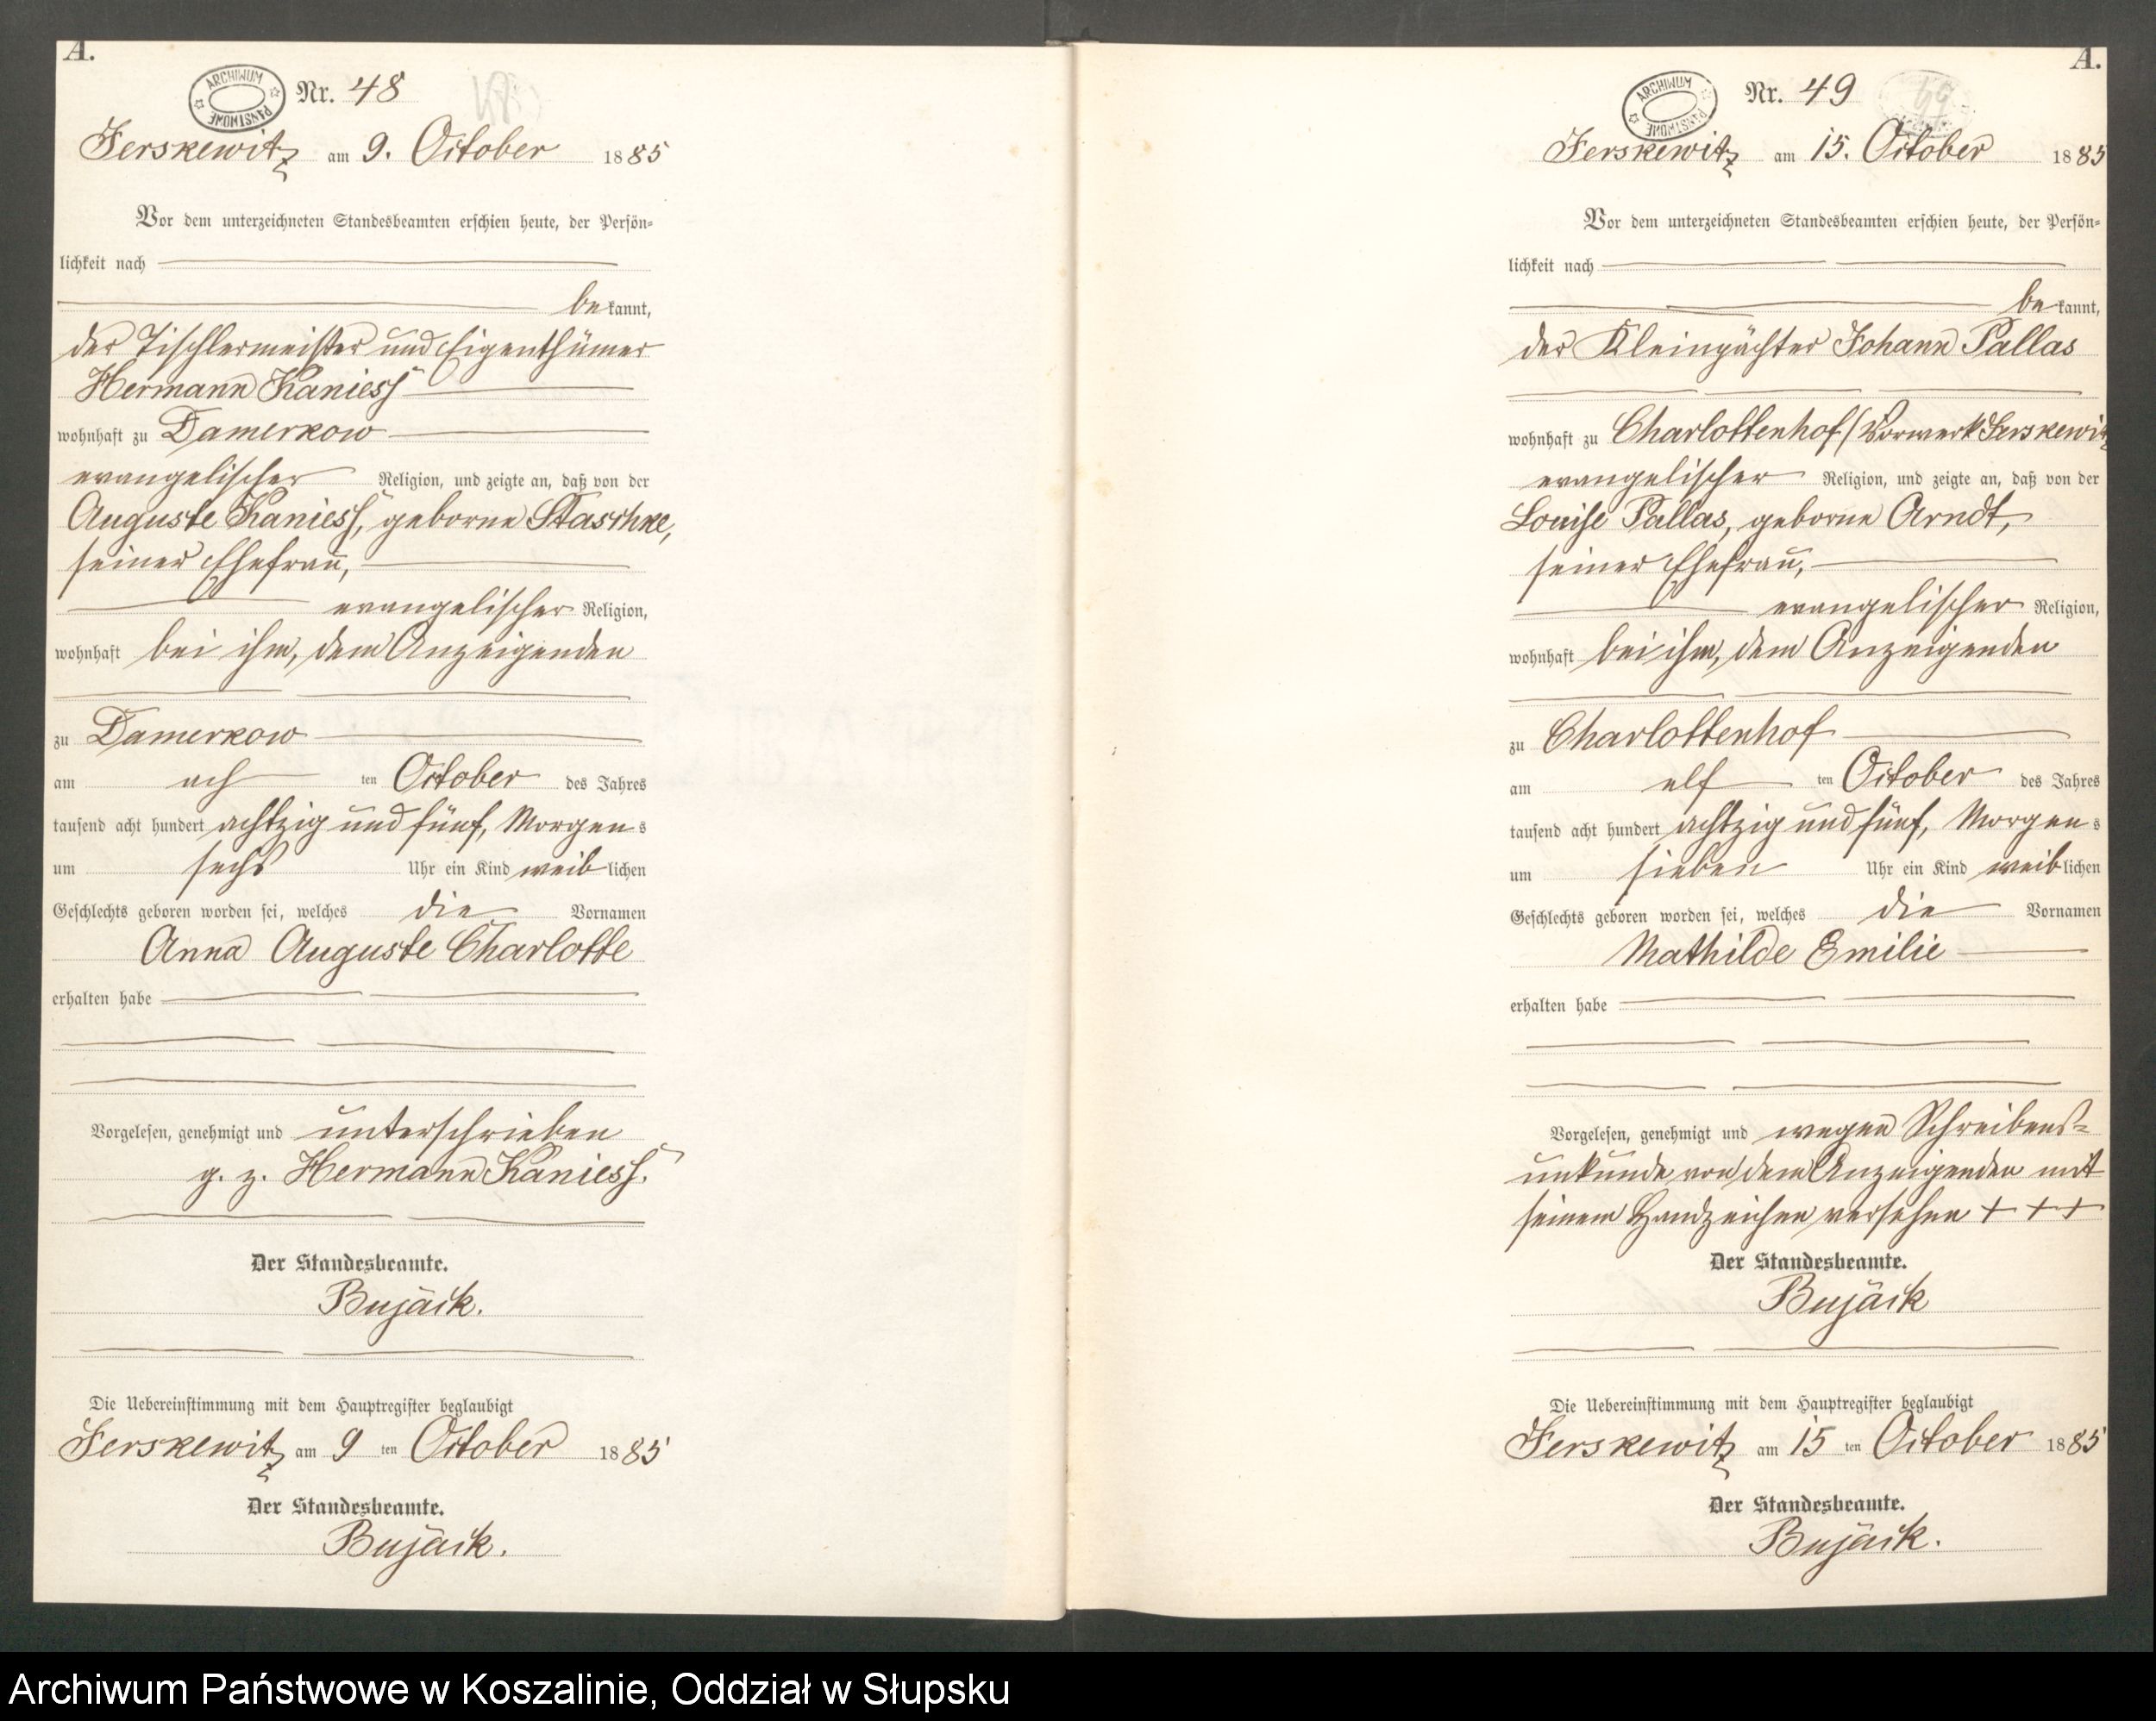 A.
ARCHIWUM PAŃSTWOWE
Nr. 48
Jerskewitz am 9. October 1885
Vor dem unterzeichneten Standesbeamten erschien heute, der Persön=
lichkeit nach
bekannt,
der Tischlermeister und Eigenthümer
Hermann Kaniess
wohnhaft zu Damerkow
evangelischer Religion, und zeigte an, daß von der
Auguste Kaniess, geborne Staschke,
seiner Ehefrau,
evangelischer Religion,
wohnhaft bei ihm, dem Anzeigenden
zu Damerkow
am ach ten October des Jahres
tausend acht hundert achtzig und fünf, Morgens
um sechs Uhr ein Kind weiblichen
Geschlechts geboren worden sei, welches die Vornamen
Anna Auguste Charlotte
erhalten habe
Vorgelesen, genehmigt und unterschrieben
g. z. Hermann Kaniess.
Der Standesbeamte.
Bujäck.
Die Uebereinstimmung mit dem Hauptregister beglaubigt
Jerskewitz am 9 ten October 1885
Der Standesbeamte.
Bujäck.
A.
ARCHIWUM PAŃSTWOWE
Nr. 49
Jerskewitz am 15. October 1885
Vor dem unterzeichneten Standesbeamten erschien heute, der Persön=
lichkeit nach
bekannt,
der Kleinpächter Johann Pallas
wohnhaft zu Charlottenhof (Vorwerk Jerskewitz
evangelischer Religion, und zeigte an, daß von der
Louise Pallas, geborne Arndt,
seiner Ehefrau,
evangelischer Religion,
wohnhaft bei ihm, dem Anzeigenden
zu Charlottenhof
am elf ten October des Jahres
tausend acht hundert achtzig und fünf, Morgens
um sieben Uhr ein Kind weiblichen
Geschlechts geboren worden sei, welches die Vornamen
Mathilde Emilie
erhalten habe
Vorgelesen, genehmigt und wegen Schreibens=
unkunde von dem Anzeigenden mit
seinem Handzeichen versehen + + +
Der Standesbeamte.
Bujäck
Die Uebereinstimmung mit dem Hauptregister beglaubigt
Jerskewitz am 15 ten October 1885
Der Standesbeamte.
Bujäck.
Archiwum Państwowe w Koszalinie, Oddział w Słupsku